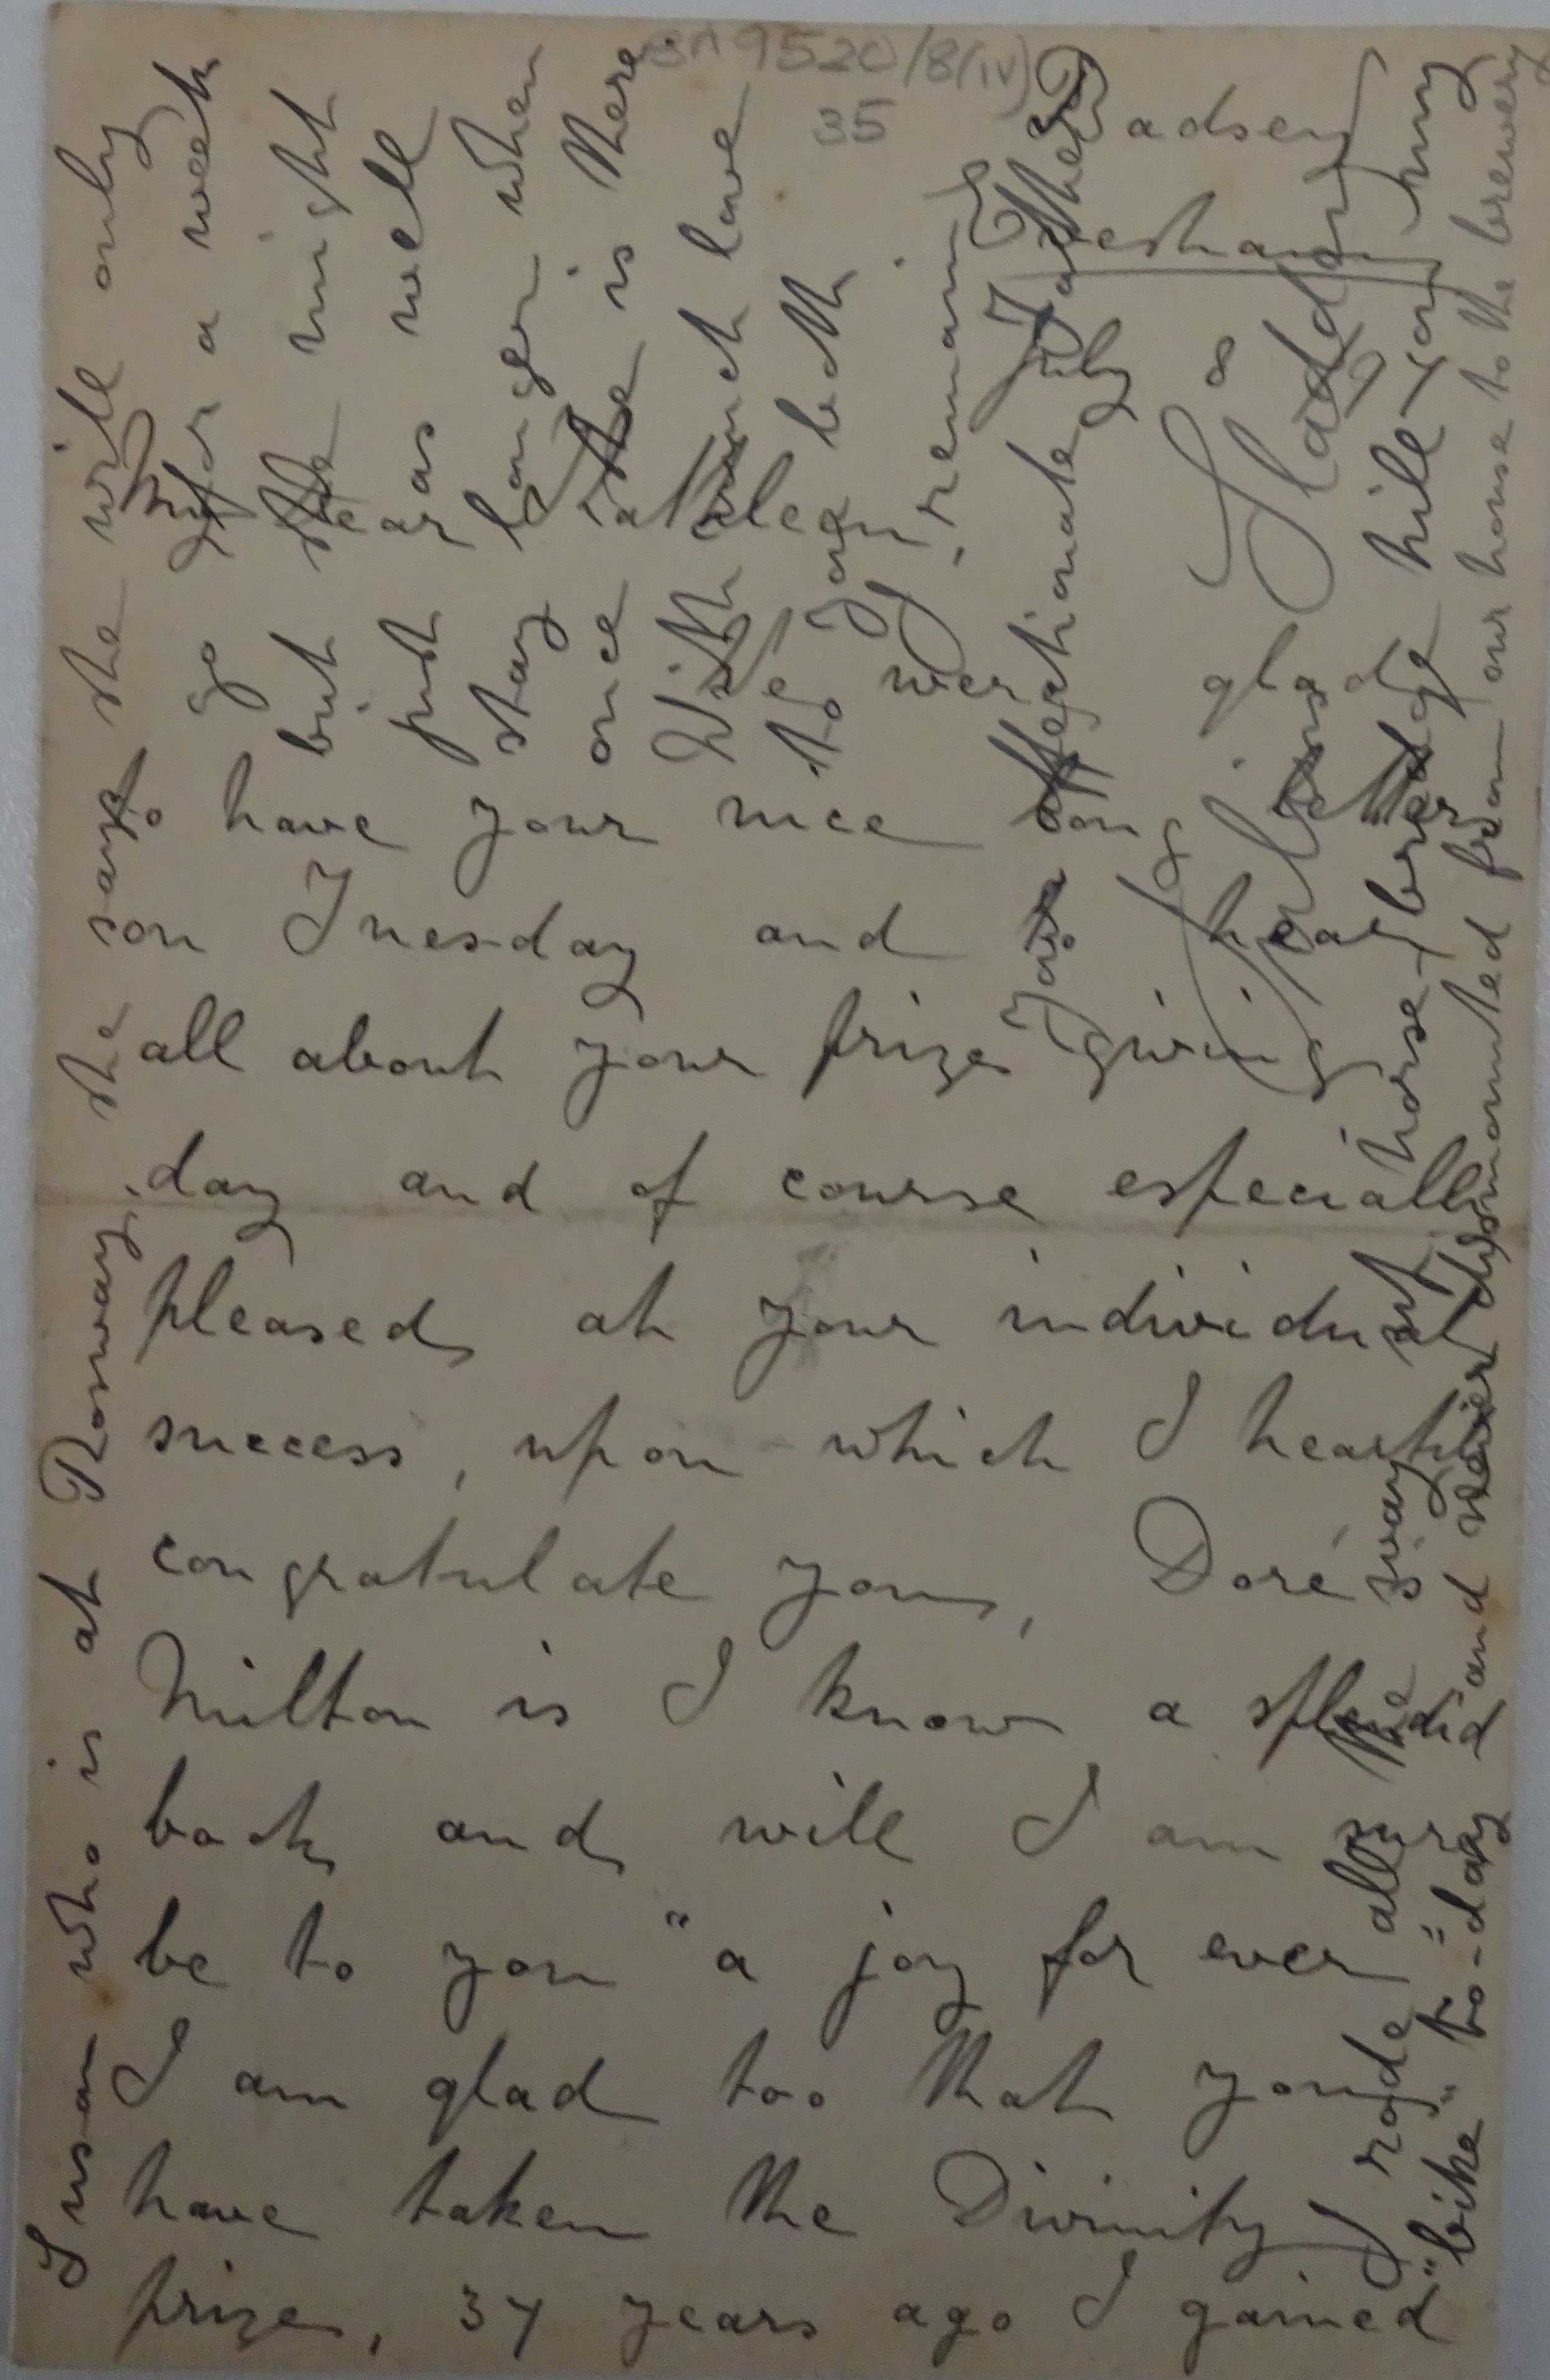 BA 9520/8(iv)
35
Badsey
Evesham
July 8 97
My dear Kathleen,
We were glad
to have your nice long letter
on Tuesday and to hear
all about your prize giving
day and of course especially
pleased at your individual
success, upon which I heartily
congratulate you, Doré's
Milton is I know a splendid
book and will I am sure
be to you "a joy for ever"
I am glad too that you
have taken the Divinity
prize, 34 years ago I gained
Susan who is at Romway, she says she will only
go for a week
but she might
just as well
stay longer when
once she is there
With much love
to you both
I remain
Your affectionate Father
Sladden
I rode all the way up horse-bridge hill on my
"bike" to-day and never dismounted from our house to the brewery